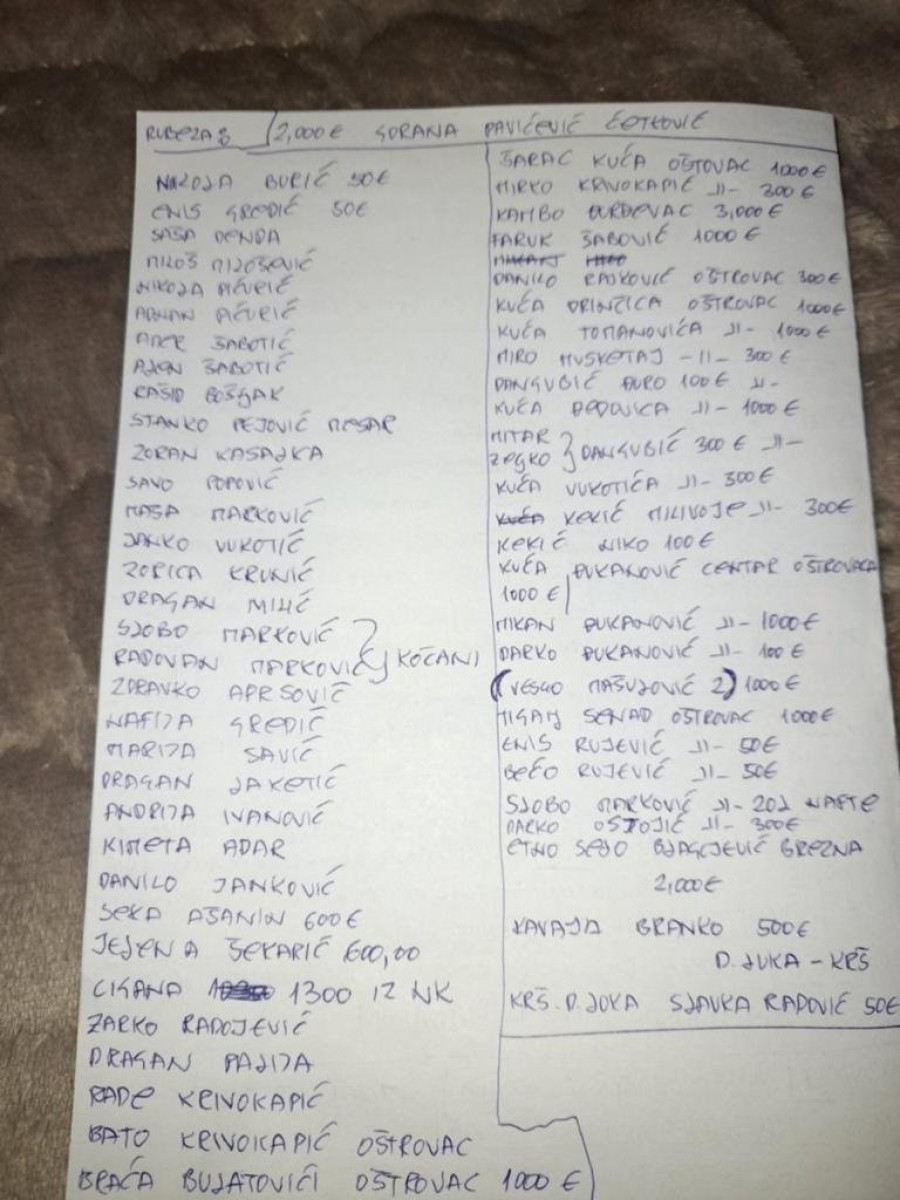 RUBEŽA 8 2,000 € GORANA PAVIĆEVIĆ ĆETKOVIĆ
NIKOLA BURIĆ 50€
ENIS GREDIĆ 50€
SAŠA DENDA
MILOŠ MILOŠEVIĆ
NIKOLA PIĆURIĆ
ADNAN PIĆURIĆ
AMER ŠABOTIĆ
ALEN ŠABOTIĆ
RAŠID BOŠNJAK
STANKO PEJOVIĆ MESAR
ZORAN KASALKA
SAVO POPOVIĆ
MAŠA MARKOVIĆ
JANKO VUKOTIĆ
ZORICA KRUNIĆ
DRAGAN MILIĆ
SLOBO MARKOVIĆ
RADOVAN MARKOVIĆ } KOČANI
ZDRAVKO APRSOVIĆ
NAFIJA GREDIĆ
MARIJA SAVIĆ
DRAGAN JAKETIĆ
ANDRIJA IVANOVIĆ
KIMETA ADAR
DANILO JANKOVIĆ
SEKA AŠANIN 600€
JELENA ŠEKARIĆ 600,00
CIGANA 1300 IZ NK
ŽARKO RADOJEVIĆ
DRAGAN PALIJA
RADE KRIVOKAPIĆ
BATO KRIVOKAPIĆ OŠTROVAC
BRAĆA BULATOVIĆI OŠTROVAC 1000 €
ŠARAC KUĆA OŠTOVAC 1000 €
MIRKO KRIVOKAPIĆ -II- 300 €
KAMBO ĐURĐEVAC 3,000 €
FARUK ŠABOVIĆ 1000 €
DANILO RADKOVIĆ OŠTROVAC 300€
KUĆA DRINČIĆA OŠTROVAC 1000€
KUĆA TOMANOVIĆA -II- 1000 €
MIRO MUSKETAJ -II- 300 €
DANGUBIĆ ĐURO 100 € -II-
KUĆA DEDOVIĆA -II- 1000 €
MITAR
ZELJKO } DANGUBIĆ 300 € -II-
KUĆA VUKOTIĆA -II- 300 €
KUĆA KEKIĆ MILIVOJE -II- 300€
KEKIĆ NIKO 100 €
KUĆA ĐUKANOVIĆ CENTAR OŠTROVACA
1000 €
MIKAN ĐUKANOVIĆ -II- 1000 €
DARKO ĐUKANOVIĆ -II- 100 €
(VESKO MAŠULOVIĆ 2) 1000 €
MIGALJ SENAD OŠTROVAC 1000 €
ENIS RUJEVIĆ -II- 50€
BEĆO RUJEVIĆ -II- 50€
SLOBO MARKOVIĆ -II- 20L NAFTE
DARKO OSTOJIĆ -II- 300€
ETNO SELO BLAGOJEVIĆ BREZNA
2,000€
KAVAJA BRANKO 500€
D. LUKA - KRŠ
KRŠ. D. LUKA SLAVKA RADOVIĆ 50€